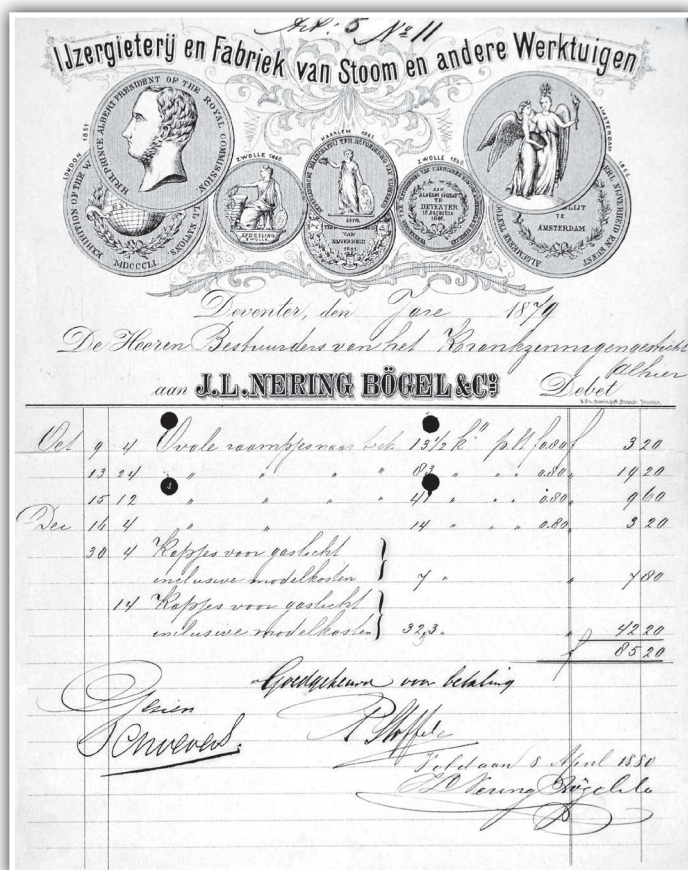 Art: 5 No 11
IJzergieterij en Fabriek van Stoom en andere Werktuigen
LONDON 1851
H.R.H PRINCE ALBERT PRESIDENT OF THE ROYAL COMMISSION
EXHIBITION OF THE W ALL NATIONS
MDCCCLI
ZWOLLE
AFDEELING ZWOLLE
HAARLEM 1861
VAN NIJVERHEID
ZWOLLE
DEVENTER
AMSTERDAM
TE AMSTERDAM
Deventer, den Jare 1879
De Heeren Bestuurders van het Krankzinnigengesticht
alhier
aan J.L. NERING BÖGEL & Co. Debet
Oct 9 4 Ovale raampjes naar bek 13 1/2 k" p. st f 0.80 f 3 20
13 24 " " " 83 " " " 0.80 " 19 20
15 12 " " " 41 " " " 0.80 " 9 60
Dec 16 4 " " 14 " " " 0.80 " 3 20
30 4 Kapjes voor gaslicht
inclusive modelkosten } 7 " " 7 80
14 Kapjes voor gaslicht
inclusive modelkosten } 32,3 " " 42 20
f 85 20
Goedgekeurd voor betaling
Gezien
Voldaan 8 April 1880
Nering Bögel & Co